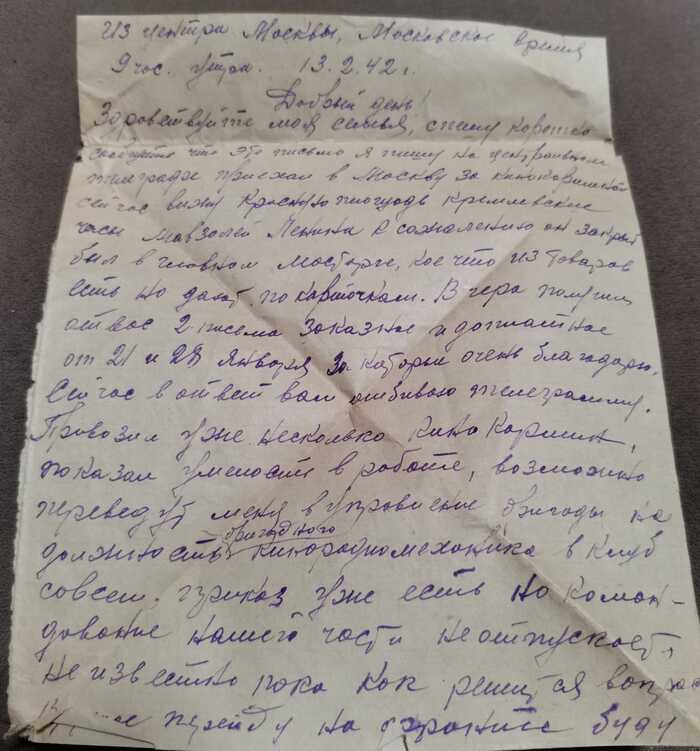 Из центра Москвы, Московское время
9 час. утра. 13.2.42 г.
Добрый день!
Здравствуйте моя семья, спешу коротко
сообщить что это письмо я пишу на центральном
телеграфе приехал в Москву за кинокартиной
сейчас вижу Красную площадь Кремлевские
часы Мавзолей Ленина к сожалению он закрыт
был в главном Мосторге, кое что из товаров
есть но дают по карточкам. Вчера получил
от вас 2 письма заказное и доплатное
от 21 и 28 января за которые очень благодарю.
Сейчас в ответ вам отбиваю телеграмму.
Провозил уже несколько кино картин,
показал умелость в работе, возможно
переведут меня в управление бригады на
бригадного
должность кинорадиомеханика в клуб
совсем, приказ уже есть но коман-
дование нашей части не отпускает,
не известно пока как решится вопрос
перейду на фронте буду